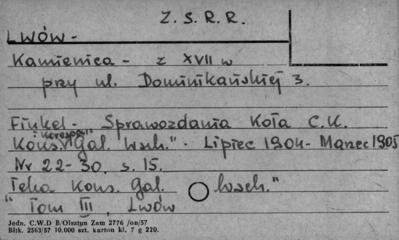 Z. S. R. R.
Lwów -
Kamienica - z XVII w
przy ul. Dominikańskiej 3.
Finkel - Sprawozdania Koła C.K.
i koresp.
Kons. Gal. "Wsch." - Lipiec 1904 - Marzec 1905
Nr 22-30. s. 15.
Teka Kons. Gal. Wsch."
"Tom III, Lwów
Jedn. C.W.D B/Olsztyn Zam 2776 /on/57
Bltk. 2563/57 10.000 szt. karton kl. 7 g 220.